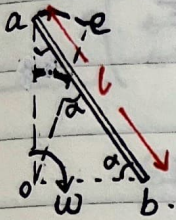 a e
l
α
α
o ω b.